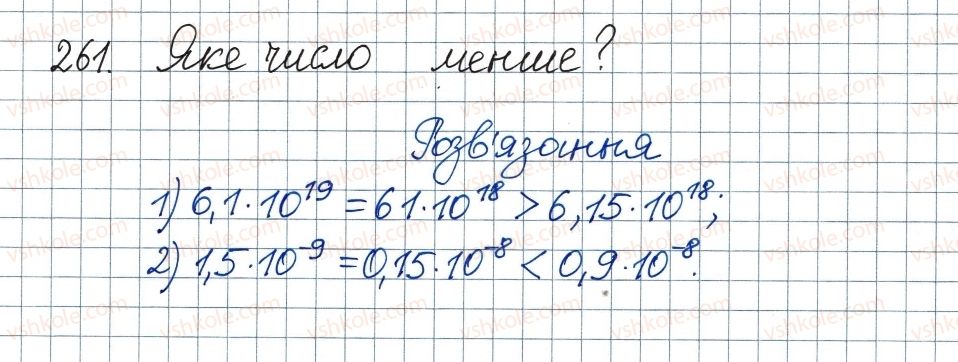 261. Яке число менше?
Розв'язання
1) 6,1·10¹⁹ = 61·10¹⁸ > 6,15·10¹⁸;
2) 1,5·10⁻⁹ = 0,15·10⁻⁸ < 0,9·10⁻⁸.